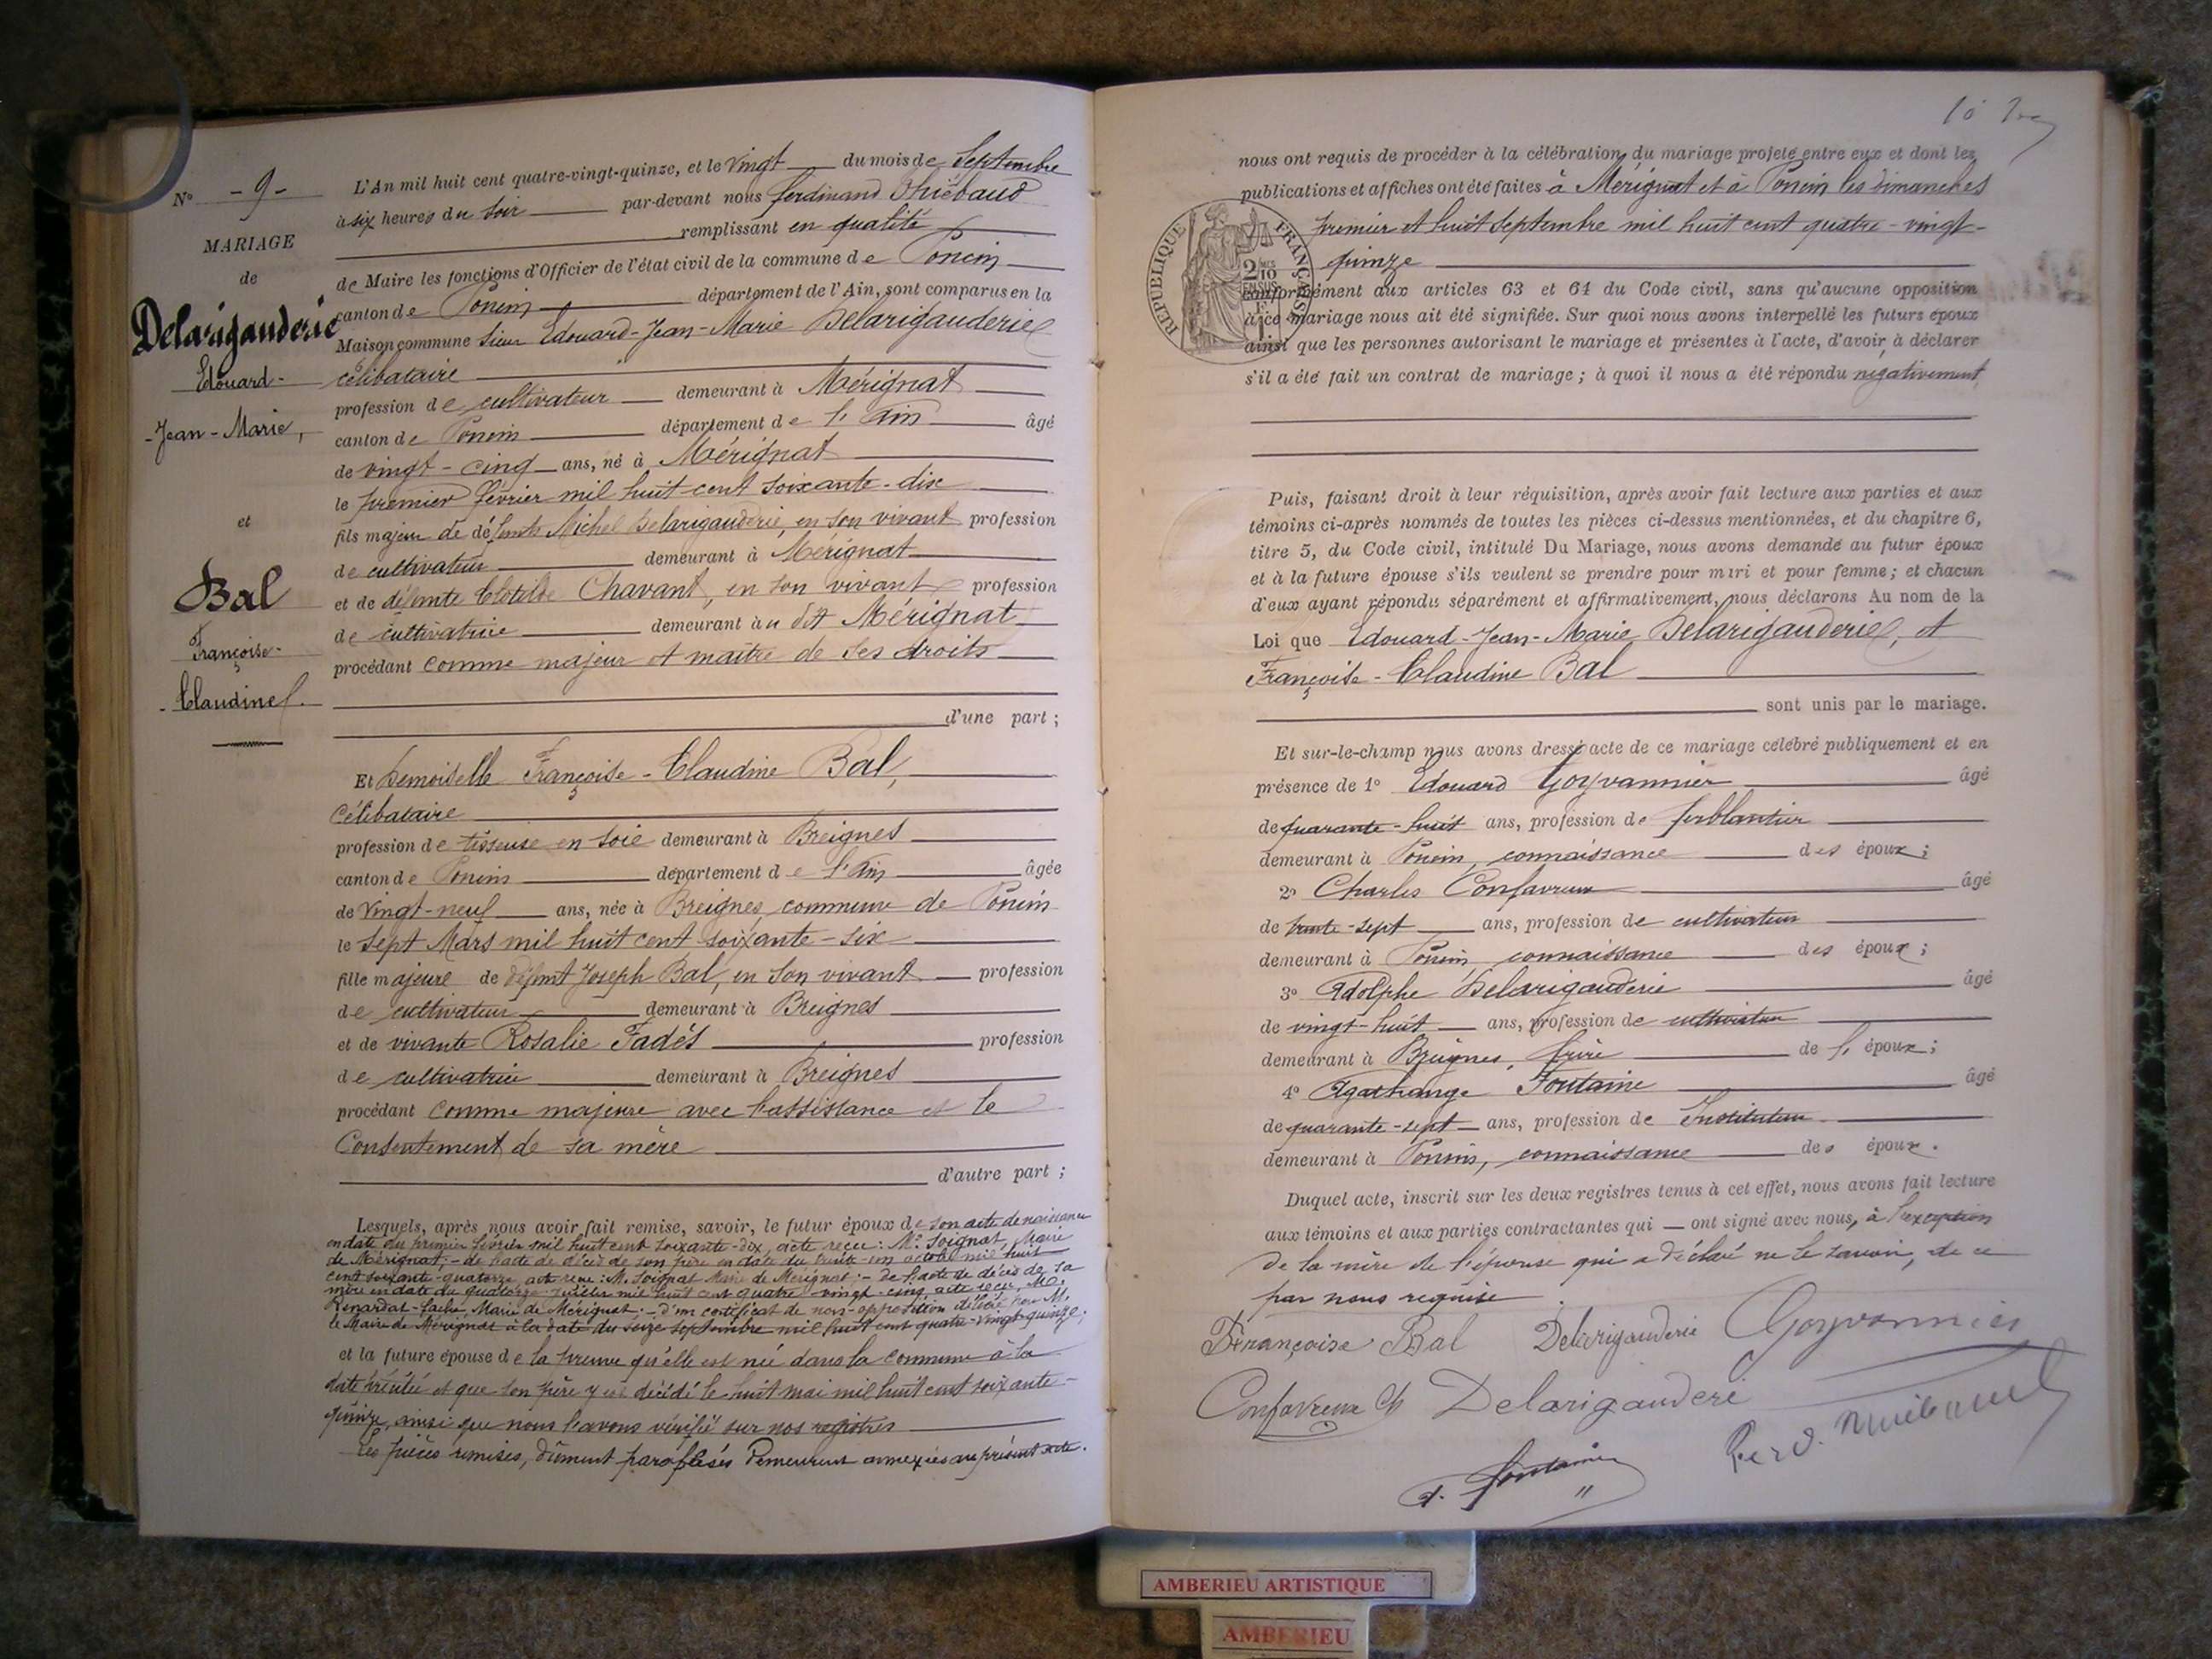 N° - 9 -
MARIAGE
de
Delarigauderie
Edouard-
-Jean-Marie,
et
Bal
Françoise-
-Claudine.
L'An mil huit cent quatre-vingt-quinze, et le vingt du mois de Septembre
à six heures du soir par-devant nous Ferdinand Thiébaud
remplissant en qualité
de Maire les fonctions d'Officier de l'état civil de la commune de Poncin
canton de Poncin département de l'Ain, sont comparus en la
Maison commune Sieur Edouard-Jean-Marie Delarigauderie
célibataire
profession de cultivateur demeurant à Mérignat
canton de Poncin département de l'Ain âgé
de vingt-cinq ans, né à Mérignat
le premier février mil huit cent soixante-dix
fils majeur de défunts Michel Delarigauderie, en son vivant profession
de cultivateur demeurant à Mérignat
et de défunte Clotilde Chavant, en son vivant profession
de cultivatrice demeurant au dit Mérignat
procédant comme majeur et maître de ses droits
d'une part ;
Et Demoiselle Françoise-Claudine Bal,
Célibataire
profession de tisseuse en soie demeurant à Breignes
canton de Poncin département de l'Ain âgée
de vingt-neuf ans, née à Breignes, commune de Poncin
le sept Mars mil huit cent soixante-six
fille majeure de défunt Joseph Bal, en son vivant profession
de cultivateur demeurant à Breignes
et de vivante Rosalie Fadés profession
de cultivatrice demeurant à Breignes
procédant comme majeure avec l'assistance et le
Consentement de sa mère
d'autre part ;
Lesquels, après nous avoir fait remise, savoir, le futur époux de son acte de naissance
en date du premier février mil huit cent soixante-dix, acte reçu : M. Soignat, Maire
de Mérignat ; - de l'acte de décès de son père en date du trente-un octobre mil huit
cent soixante-quatorze, acte reçu : M. Soignat Maire de Mérignat ; - de l'acte de décès de sa
mère en date du quatorze juillet mil huit cent quatre-vingt-cinq, acte reçu, M.
Renardat-Fache Maire de Mérignat ; - d'un certificat de non-opposition délivré par M.
le Maire de Mérignat à la date du seize septembre mil huit cent quatre-vingt-quinze ;
et la future épouse de la preuve qu'elle est née dans la commune à la
date précitée et que son père y est décédé le huit mai mil huit cent soixante-
quinze, ainsi que nous l'avons vérifié sur nos registres
Les pièces remises, dûment paraphées demeurent annexées au présent acte.
10
nous ont requis de procéder à la célébration du mariage projeté entre eux et dont les
publications et affiches ont été faites à Mérignat et à Poncin les dimanches
premier et huit Septembre mil huit cent quatre-vingt-
quinze
RÉPUBLIQUE FRANÇAISE
2/10 EN SUS
conformément aux articles 63 et 64 du Code civil, sans qu'aucune opposition
à ce mariage nous ait été signifiée. Sur quoi nous avons interpellé les futurs époux
ainsi que les personnes autorisant le mariage et présentes à l'acte, d'avoir à déclarer
s'il a été fait un contrat de mariage ; à quoi il nous a été répondu négativement
Puis, faisant droit à leur réquisition, après avoir fait lecture aux parties et aux
témoins ci-après nommés de toutes les pièces ci-dessus mentionnées, et du chapitre 6,
titre 5, du Code civil, intitulé Du Mariage, nous avons demandé au futur époux
et à la future épouse s'ils veulent se prendre pour mari et pour femme ; et chacun
d'eux ayant répondu séparément et affirmativement, nous déclarons Au nom de la
Loi que Edouard-Jean-Marie Delarigauderie, et
Françoise-Claudine Bal
sont unis par le mariage.
Et sur-le-champ nous avons dressé acte de ce mariage célébré publiquement et en
présence de 1° Edouard Goyvannier âgé
de quarante-huit ans, profession de ferblantier
demeurant à Poncin, connaissance des époux ;
2° Charles Confavreux âgé
de trente-sept ans, profession de cultivateur
demeurant à Poncin connaissance des époux ;
3° Adolphe Delarigauderie âgé
de vingt-huit ans, profession de cultivateur
demeurant à Breignes, frère de l'époux ;
4° Agathange Fontaine âgé
de quarante-sept ans, profession de Instituteur
demeurant à Poncin, connaissance des époux.
Duquel acte, inscrit sur les deux registres tenus à cet effet, nous avons fait lecture
aux témoins et aux parties contractantes qui ont signé avec nous, à l'exception
de la mère de l'épouse qui a déclaré ne le savoir, de ce
par nous requise.
Françoise Bal Delarigauderie Goyvannier
Confavreux Ch Delarigauderi
A. Fontaine Ferd. Thiébaud
AMBERIEU ARTISTIQUE
AMBERIEU